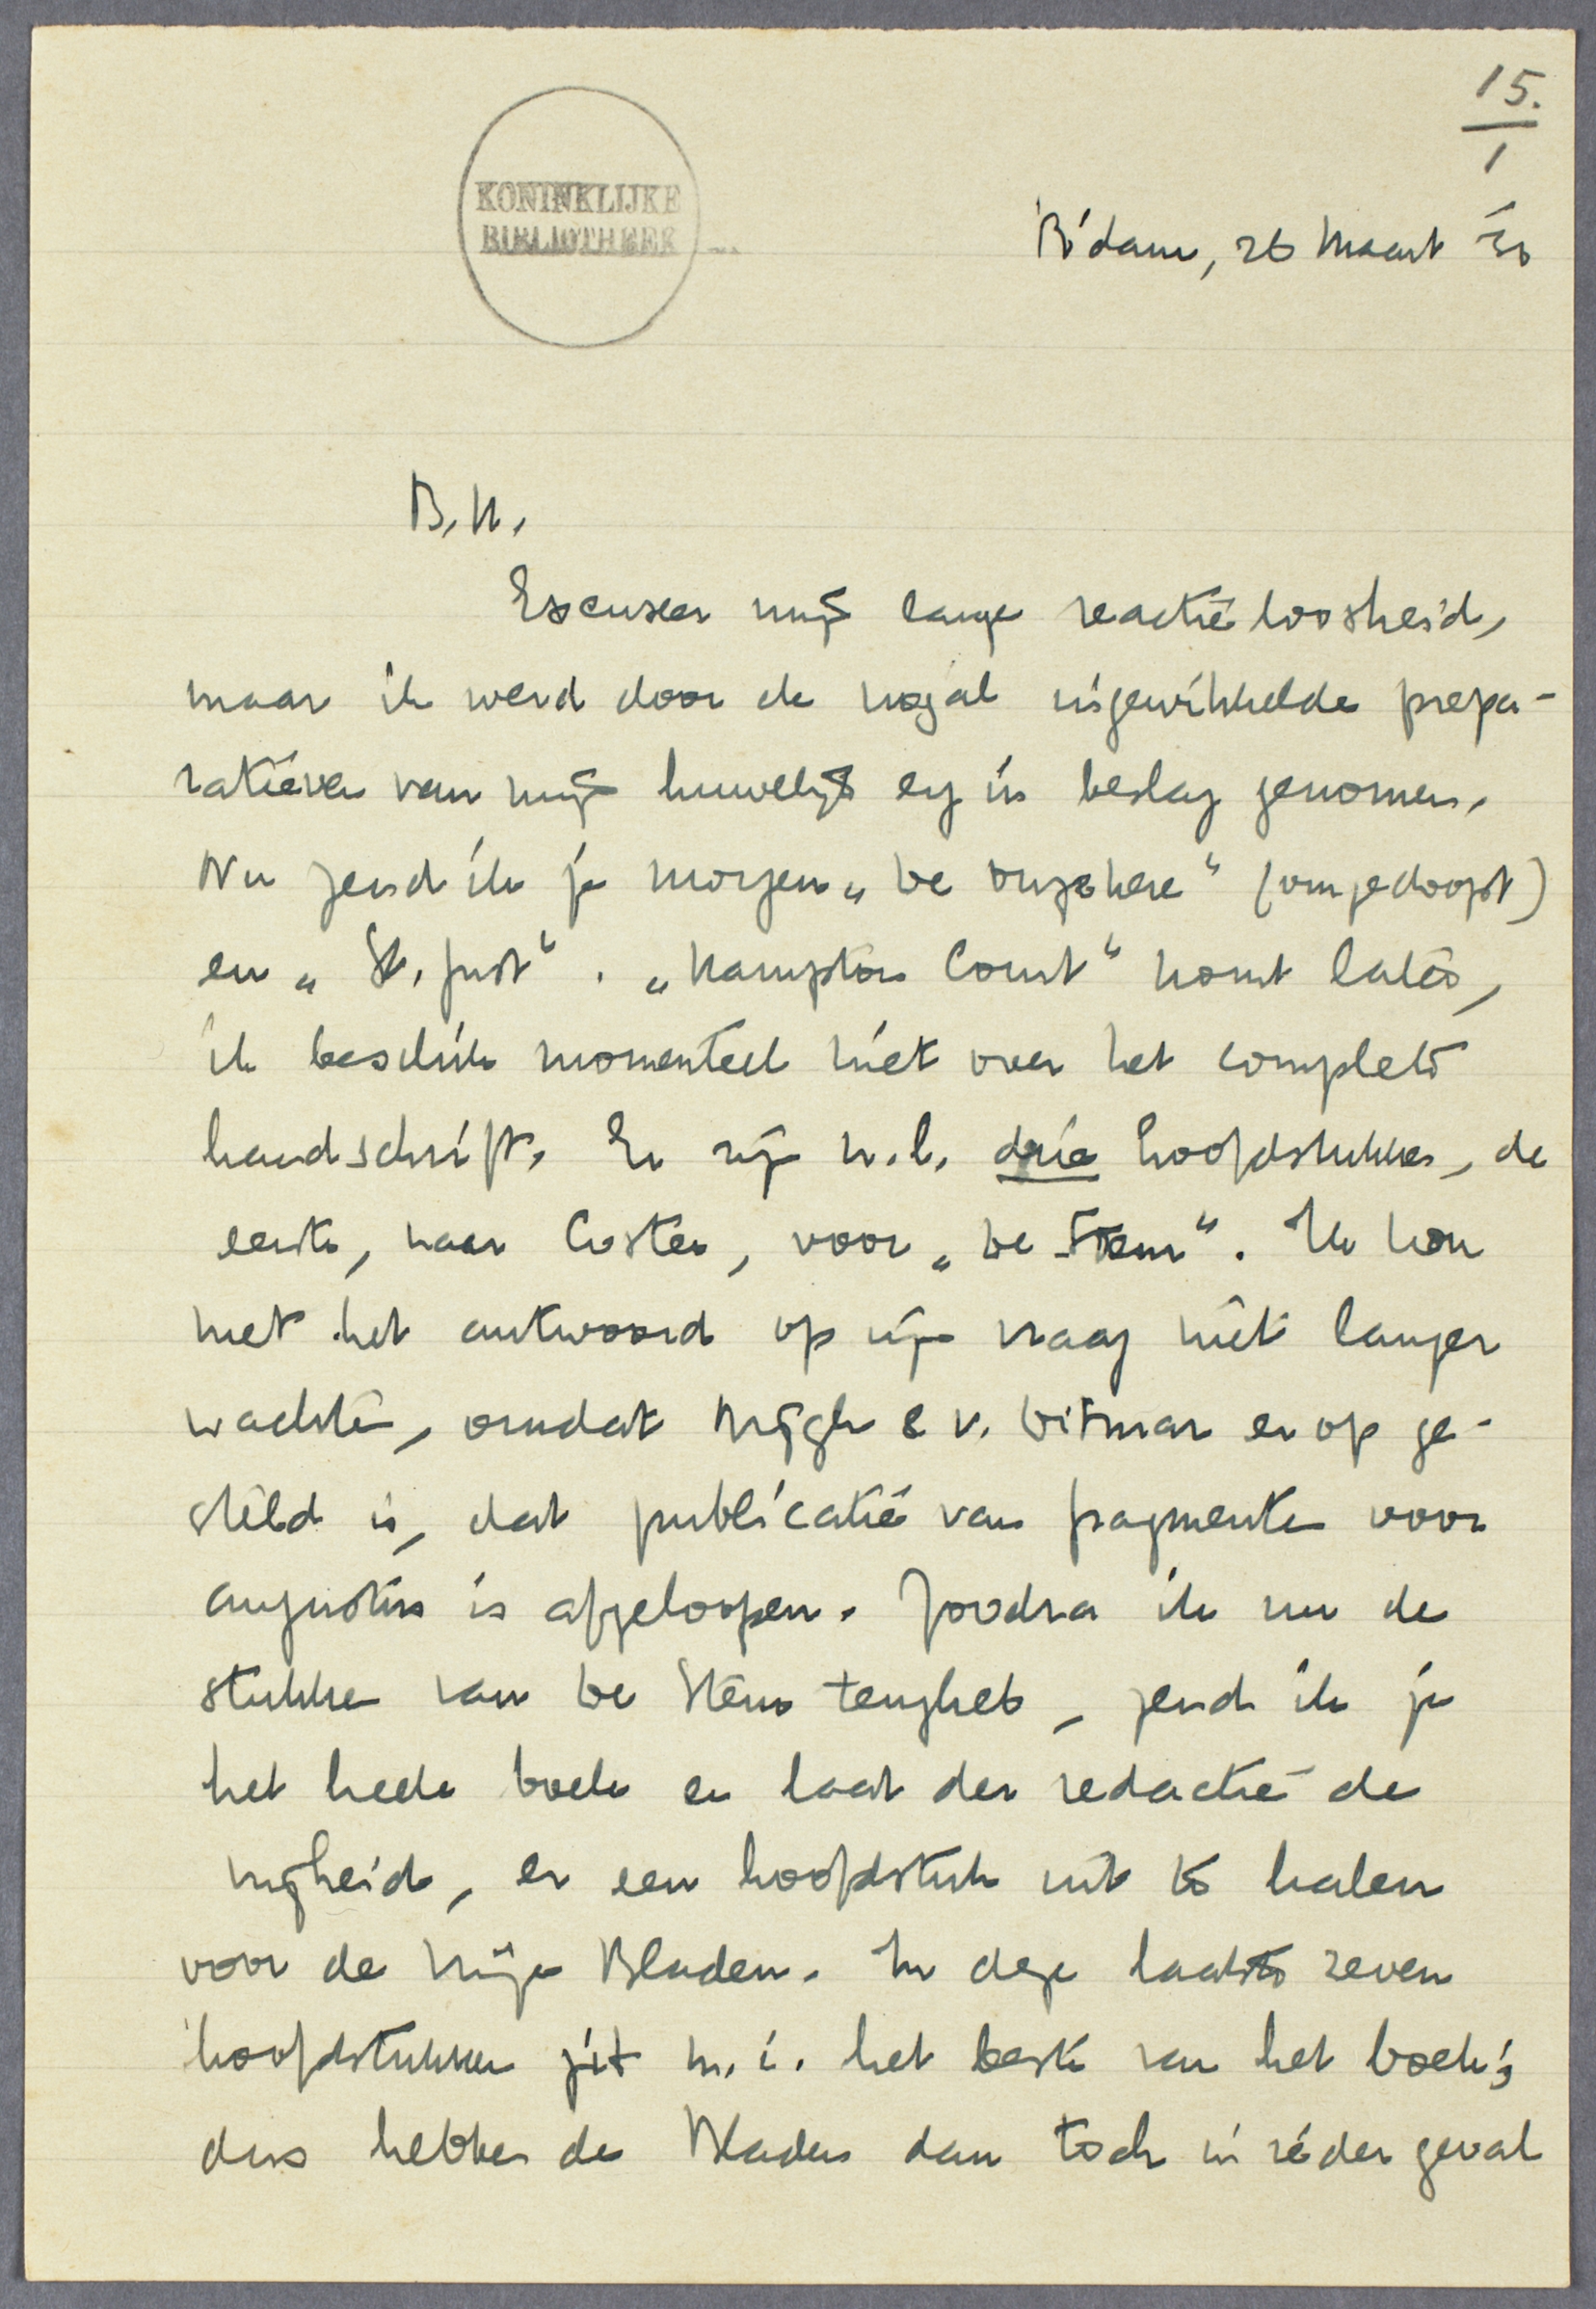 15.
1
KONINKLIJKE
BIBLIOTHEEK
R'dam, 26 Maart '30
B.H.
Excuseer mijn lange reactieloosheid,
maar ik werd door de nogal ingewikkelde prepa-
ratieven van mijn huwelijk erg in beslag genomen.
Nu zend ik je morgen „De Onzekere" (omgedoopt)
en „St. Just". „Hampton Court" komt later,
ik beschik momenteel niet over het complete
handschrift. Er zijn n.l. drie hoofdstukken, de
eerste, naar Coster, voor „De Stem". Ik kon
met het antwoord op zijn vraag niet langer
wachten, omdat Nijgh & v. Ditmar er op ge-
steld is, dat publicatie van fragmenten voor
Augustus is afgeloopen. Zoodra ik nu de
stukken van De Stem terugheb, zend ik je
het heele boek en laat der redactie de
vrijheid, er een hoofdstuk uit te halen
voor de Vrije Bladen. In deze laatste zeven
hoofdstukken zit m.i. het beste van het boek;
dus hebben de Bladen dan toch in ieder geval